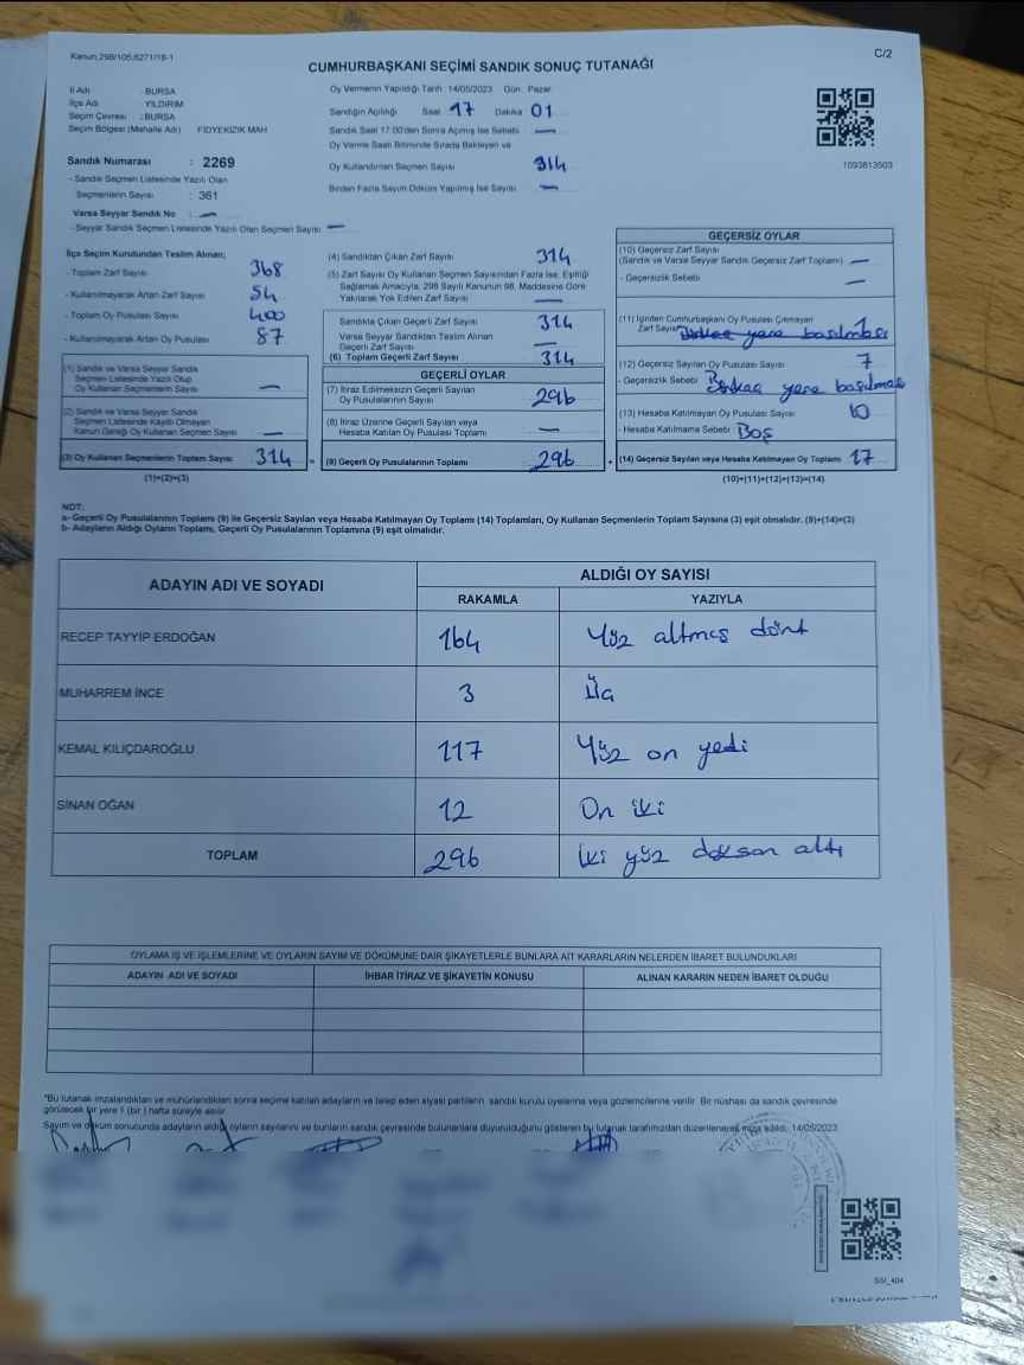 Kanun:298/105,6271/16-1
C/2
CUMHURBAŞKANI SEÇİMİ SANDIK SONUÇ TUTANAĞI
İl Adı : BURSA
İlçe Adı : YILDIRIM
Seçim Çevresi : BURSA
Seçim Bölgesi (Mahalle Adı) FİDYEKIZIK MAH
Sandık Numarası : 2269
- Sandık Seçmen Listesinde Yazılı Olan
Seçmenlerin Sayısı : 361
Varsa Seyyar Sandık No : —
- Seyyar Sandık Seçmen Listesinde Yazılı Olan Seçmen Sayısı —
Oy Vermenin Yapıldığı Tarih : 14/05/2023 Gün: Pazar
Sandığın Açıldığı Saat 17 Dakika 01
Sandık Saat 17.00'den Sonra Açılmış İse Sebebi —
Oy Verme Saati Bitiminde Sırada Bekleyen ve
Oy Kullandırılan Seçmen Sayısı 314
Birden Fazla Sayım Döküm Yapılmış İse Sayısı —
1093813503
İlçe Seçim Kurulundan Teslim Alınan;
- Toplam Zarf Sayısı 368
- Kullanılmayarak Artan Zarf Sayısı 54
- Toplam Oy Pusulası Sayısı 400
- Kullanılmayarak Artan Oy Pusulası 87
(1) Sandık ve Varsa Seyyar Sandık
Seçmen Listesinde Yazılı Olup
Oy Kullanan Seçmenlerin Sayısı —
(2) Sandık ve Varsa Seyyar Sandık
Seçmen Listesinde Kayıtlı Olmayan
Kanun Gereği Oy Kullanan Seçmen Sayısı —
(3) Oy Kullanan Seçmenlerin Toplam Sayısı 314 =
(1)+(2)=(3)
(4) Sandıktan Çıkan Zarf Sayısı 314
(5) Zarf Sayısı Oy Kullanan Seçmen Sayısından Fazla İse, Eşitliği
Sağlamak Amacıyla, 298 Sayılı Kanunun 98. Maddesine Göre
Yakılarak Yok Edilen Zarf Sayısı —
Sandıkta Çıkan Geçerli Zarf Sayısı 314
Varsa Seyyar Sandıktan Teslim Alınan
Geçerli Zarf Sayısı —
(6) Toplam Geçerli Zarf Sayısı 314
GEÇERLİ OYLAR
(7) İtiraz Edilmeksizin Geçerli Sayılan
Oy Pusulalarının Sayısı 296
(8) İtiraz Üzerine Geçerli Sayılan veya
Hesaba Katılan Oy Pusulası Toplamı —
(9) Geçerli Oy Pusulalarının Toplamı 296 +
GEÇERSİZ OYLAR
(10) Geçersiz Zarf Sayısı
(Sandık ve Varsa Seyyar Sandık Geçersiz Zarf Toplamı) —
- Geçersizlik Sebebi : —
(11) İçinden Cumhurbaşkanı Oy Pusulası Çıkmayan
Zarf Sayısı 1
yere basılması
(12) Geçersiz Sayılan Oy Pusulası Sayısı 7
- Geçersizlik Sebebi Birkaç yere basılması
(13) Hesaba Katılmayan Oy Pusulası Sayısı 10
- Hesaba Katılmama Sebebi Boş
(14) Geçersiz Sayılan veya Hesaba Katılmayan Oy Toplamı 17
(10)+(11)+(12)+(13)=(14)
NOT:
a- Geçerli Oy Pusulalarının Toplamı (9) ile Geçersiz Sayılan veya Hesaba Katılmayan Oy Toplamı (14) Toplamları, Oy Kullanan Seçmenlerin Toplam Sayısına (3) eşit olmalıdır. (9)+(14)=(3)
b- Adayların Aldığı Oyların Toplamı, Geçerli Oy Pusulalarının Toplamına (9) eşit olmalıdır.
ADAYIN ADI VE SOYADI
ALDIĞI OY SAYISI
RAKAMLA YAZIYLA
RECEP TAYYİP ERDOĞAN 164 Yüz altmış dört
MUHARREM İNCE 3 Üç
KEMAL KILIÇDAROĞLU 117 Yüz on yedi
SİNAN OĞAN 12 On iki
TOPLAM 296 İki yüz doksan altı
OYLAMA İŞ VE İŞLEMLERİNE VE OYLARIN SAYIM VE DÖKÜMÜNE DAİR ŞİKAYETLERLE BUNLARA AİT KARARLARIN NELERDEN İBARET BULUNDUKLARI
ADAYIN ADI VE SOYADI İHBAR İTİRAZ VE ŞİKAYETİN KONUSU ALINAN KARARIN NEDEN İBARET OLDUĞU
*Bu tutanak imzalandıktan ve mühürlendikten sonra seçime katılan adayların ve talep eden siyasi partilerin sandık kurulu üyelerine veya gözlemcilerine verilir. Bir nüshası da sandık çevresinde
görülecek bir yere 1 (bir) hafta süreyle asılır.
Sayım ve döküm sonucunda adayların aldığı oyların sayılarını ve bunların sandık çevresinde bulunanlara duyurulduğunu gösteren bu tutanak tarafımızdan düzenlenerek imza edildi. 14/05/2023
SSI_404